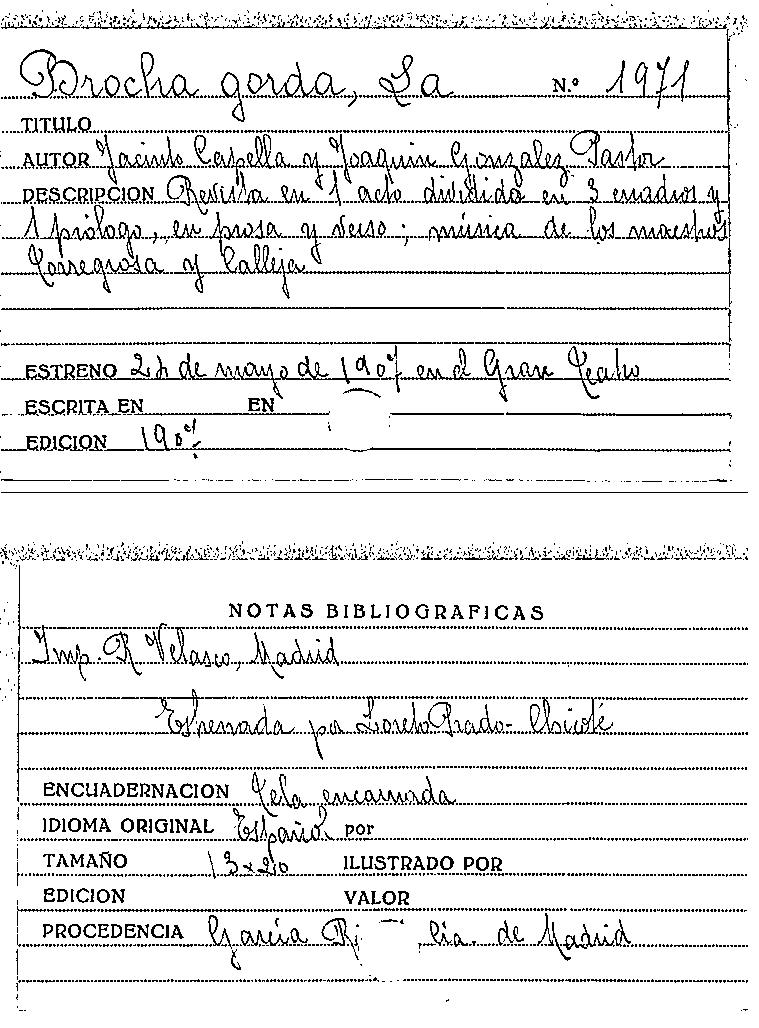 Brocha gorda, La N.º 1971
TITULO
AUTOR Jacinto Capella y Joaquin Gonzalez Pastor
DESCRIPCION Revista en 1 acto dividido en 3 cuadros y
1 prólogo, en prosa y verso; música de los maestros
Torregrosa y Calleja
ESTRENO 24 de mayo de 1907 en el Gran Teatro
ESCRITA EN EN
EDICION 1907
NOTAS BIBLIOGRAFICAS
Imp. R Velasco, Madrid
Estrenada por Loreto Prado - Chicote
ENCUADERNACION Tela encarnada
IDIOMA ORIGINAL Español por
TAMAÑO 13 x 20 ILUSTRADO POR
EDICION VALOR
PROCEDENCIA García cia. de Madrid